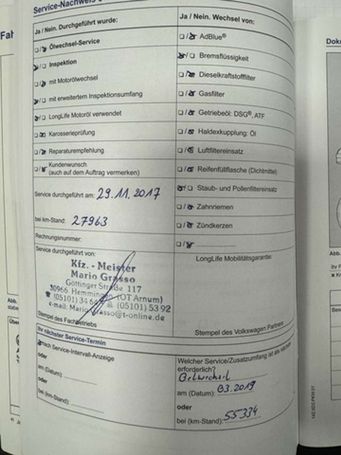 Service-Nachweis
Ja / Nein. Durchgeführt wurde:
Ölwechsel-Service
Inspektion
mit Motorölwechsel
mit erweitertem Inspektionsumfang
LongLife Motoröl verwendet
Karosserieprüfung
Reparaturempfehlung
Kundenwunsch
(auch auf dem Auftrag vermerken)
Service durchgeführt am: 29.11.2017
bei km-Stand: 27963
Rechnungsnummer:
Service durchgeführt von:
Kfz. - Meister
Mario Grasso
Göttinger Straße 117
30966 Hemmingen (OT Arnum)
(05101) 53 92
Stempel des Fachbetriebs
Ja / Nein. Wechsel von:
AdBlue®
Bremsflüssigkeit
Dieselkraftstofffilter
Gasfilter
Getriebeöl: DSG®, ATF
Haldexkupplung: Öl
Luftfiltereinsatz
Reifenfüllflasche (Dichtmittel)
Staub- und Pollenfiltereinsatz
Zahnriemen
Zündkerzen
LongLife Mobilitätsgarantie:
Stempel des Volkswagen Partners
Ihr nächster Service-Termin
nach Service-Intervall-Anzeige
oder
am (Datum)
oder
bei (km-Stand):
Welcher Service/Zusatzumfang ist als nächster
erforderlich?
am (Datum) 03.2019
oder
bei (km-Stand): 55334